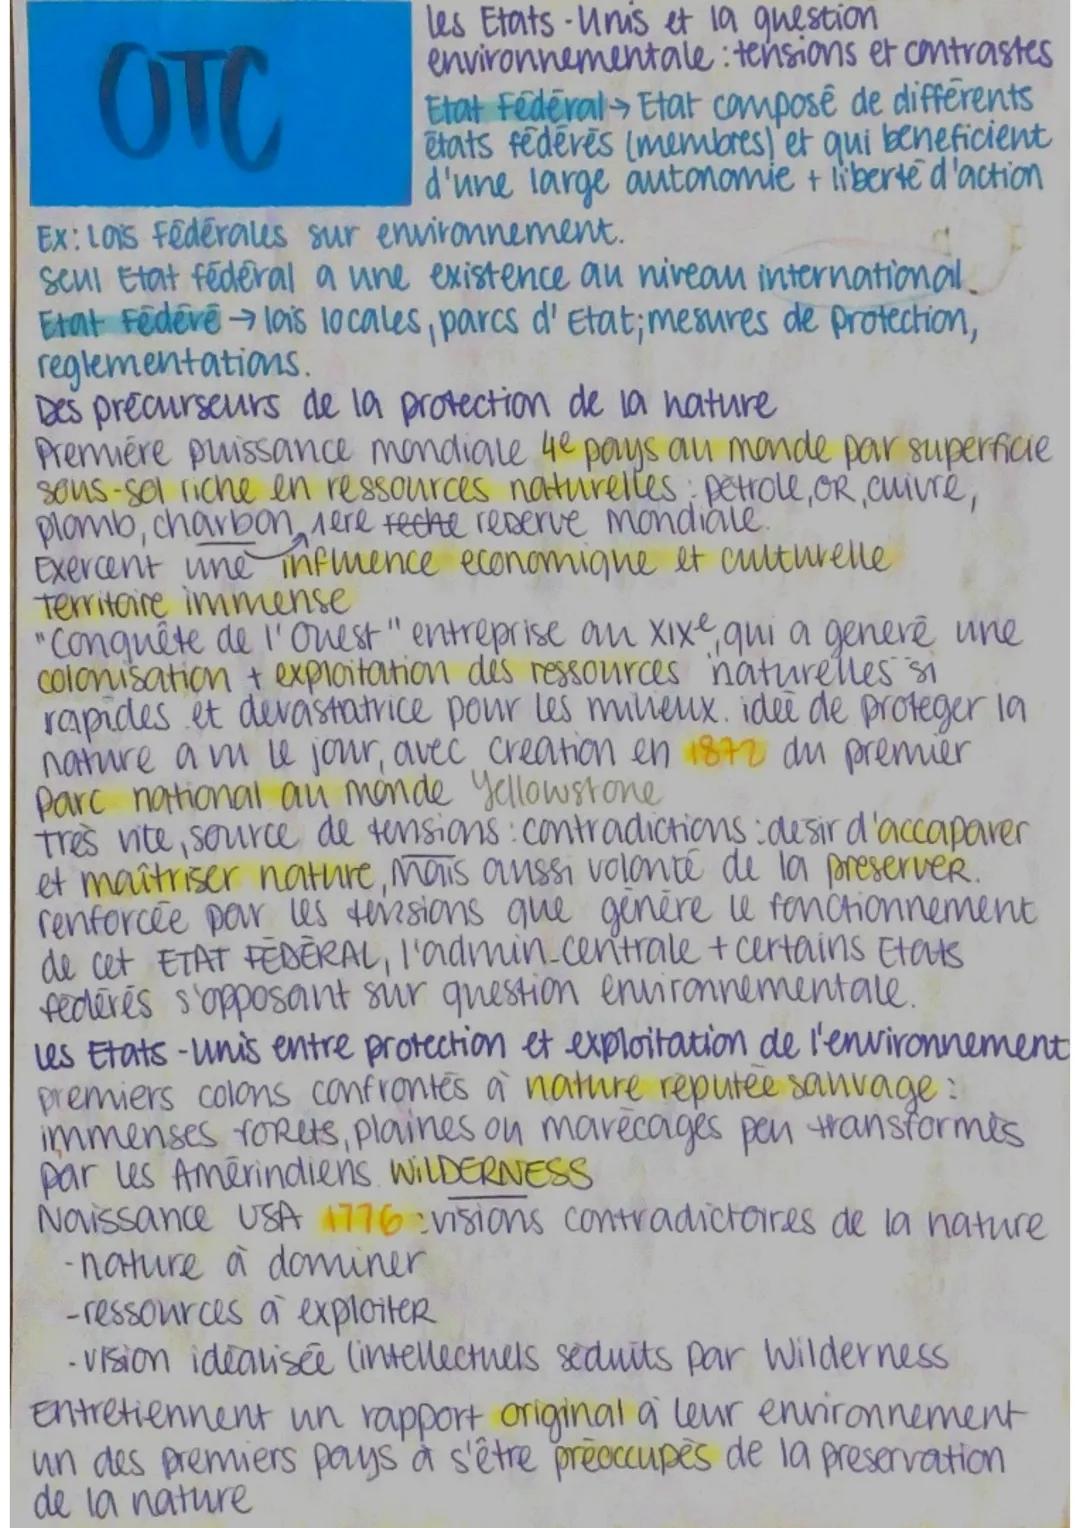 OTC
les Etats-Unis et la question
environnementale : tensions et contrastes
Etat Fédéral → Etat composé de différents
états fédérés (membres) et qui beneficient
d'une large autonomie + liberté d'action
Ex: lois fédérales sur environnement.
seul Etat fédéral a une existence au niveau international.
Etat Fédéré → lois locales, parcs d'Etat; mesures de protection,
reglementations.
Des précurseurs de la protection de la nature
Première puissance mondiale 4e pays au monde par superficie
sous-sol riche en ressources naturelles : pétrole, OR, cuivre,
plomb, charbon, 1ere reche reserve mondiale.
Exercent une influence economique et culturelle
Territoire immense
"Conquête de l'Ouest" entreprise au XIXe, qui a generé une
colonisation + exploitation des ressources naturelles si
rapides et devastatrice pour les milieux. idée de proteger la
nature a vu le jour, avec creation en 1872 du premier
parc national au monde Yellowstone
Très vite, source de tensions : contradictions : desir d'accaparer
et maîtriser nature, mais aussi volonté de la preserver.
renforcée par les tensions que génère le fonctionnement
de cet ETAT FÉDÉRAL, l'admin centrale + certains Etats
fédérés s'opposant sur question environnementale.
Les Etats-Unis entre protection et exploitation de l'environnement
premiers colons confrontés à nature reputée sauvage :
immenses forets, plaines ou marécages peu transformés
par les Amérindiens WILDERNESS
Naissance USA 1776 : visions contradictoires de la nature
- nature à dominer
- ressources à exploiter
- vision idéalisée (intellectuels seduits par Wilderness
Entretiennent un rapport original à leur environnement
un des premiers pays à s'être préoccupés de la preservation
de la nature